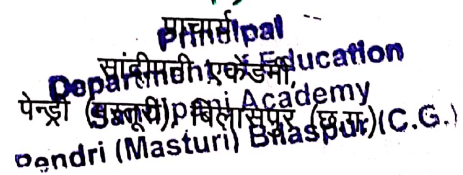 प्राचार्य
Principal
सांदीपनी एकेडमी,
Department of Education
पेन्ड्री (मस्तूरी), बिलासपुर (छ.ग.)
Sandipani Academy
Pendri (Masturi) Bilaspur (C.G.)